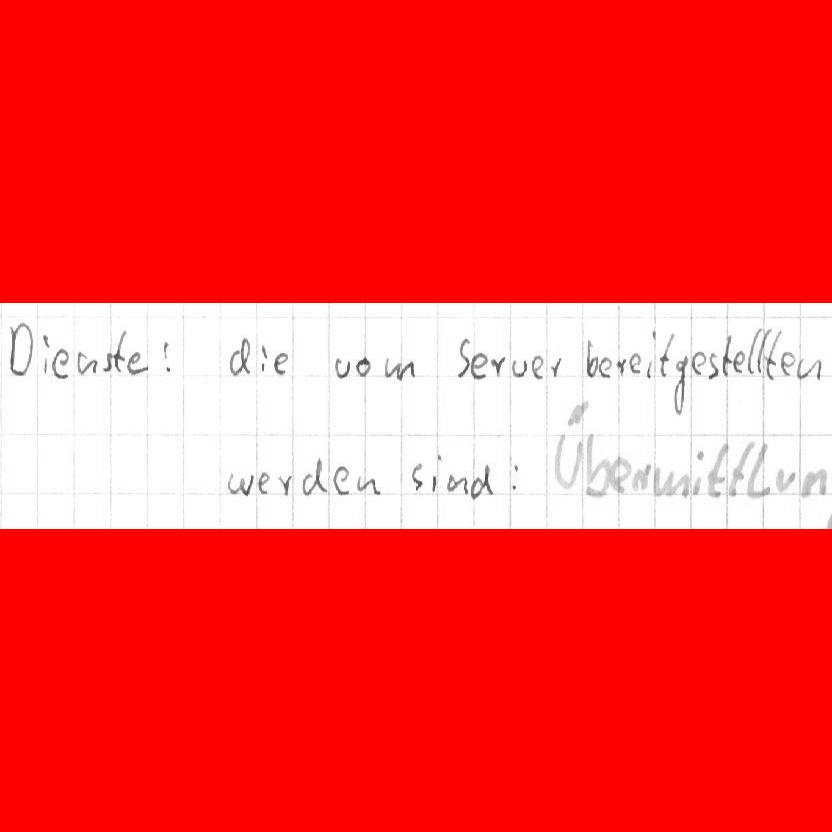 Dienste: die vom Server bereitgestellten
werden sind: Übermittlun